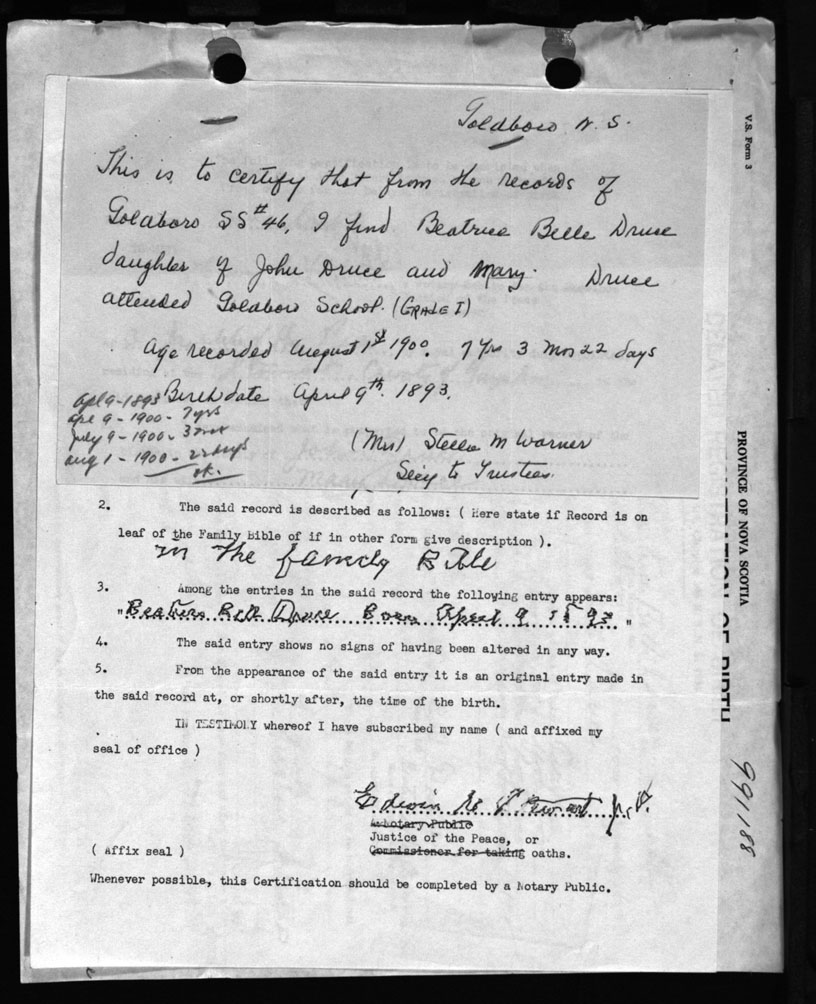 Goldboro N.S.
This is to certify that from the records of
Goldboro SS #46, I find Beatrice Belle Druce
daughter of John Druce and Mary Druce
attended Goldboro School. (GRADE I)
Age recorded August 1st 1900. 7 Yrs 3 Mos 22 days
Birthdate April 9th. 1893.
Apl 9-1893
Apl 9-1900-7yrs
July 9-1900-3mos
Aug 1-1900-22days
ok.
(Mrs) Stella M Warner
Sec'y to Trustees.
2. The said record is described as follows: ( Here state if Record is on
leaf of the Family Bible of if in other form give description ).
in The family Bible
3. Among the entries in the said record the following entry appears:
"Beatrice Bell Druce Born April 9 1893 "
4. The said entry shows no signs of having been altered in any way.
5. From the appearance of the said entry it is an original entry made in
the said record at, or shortly after, the time of the birth.
IN TESTIMONY whereof I have subscribed my name ( and affixed my
seal of office )
Edwin J.P.
A Notary Public
Justice of the Peace, or
( Affix seal ) Commissioner for taking oaths.
Whenever possible, this Certification should be completed by a Notary Public.
V.S. Form 3
PROVINCE OF NOVA SCOTIA
REGISTRATION OF BIRTH
991188